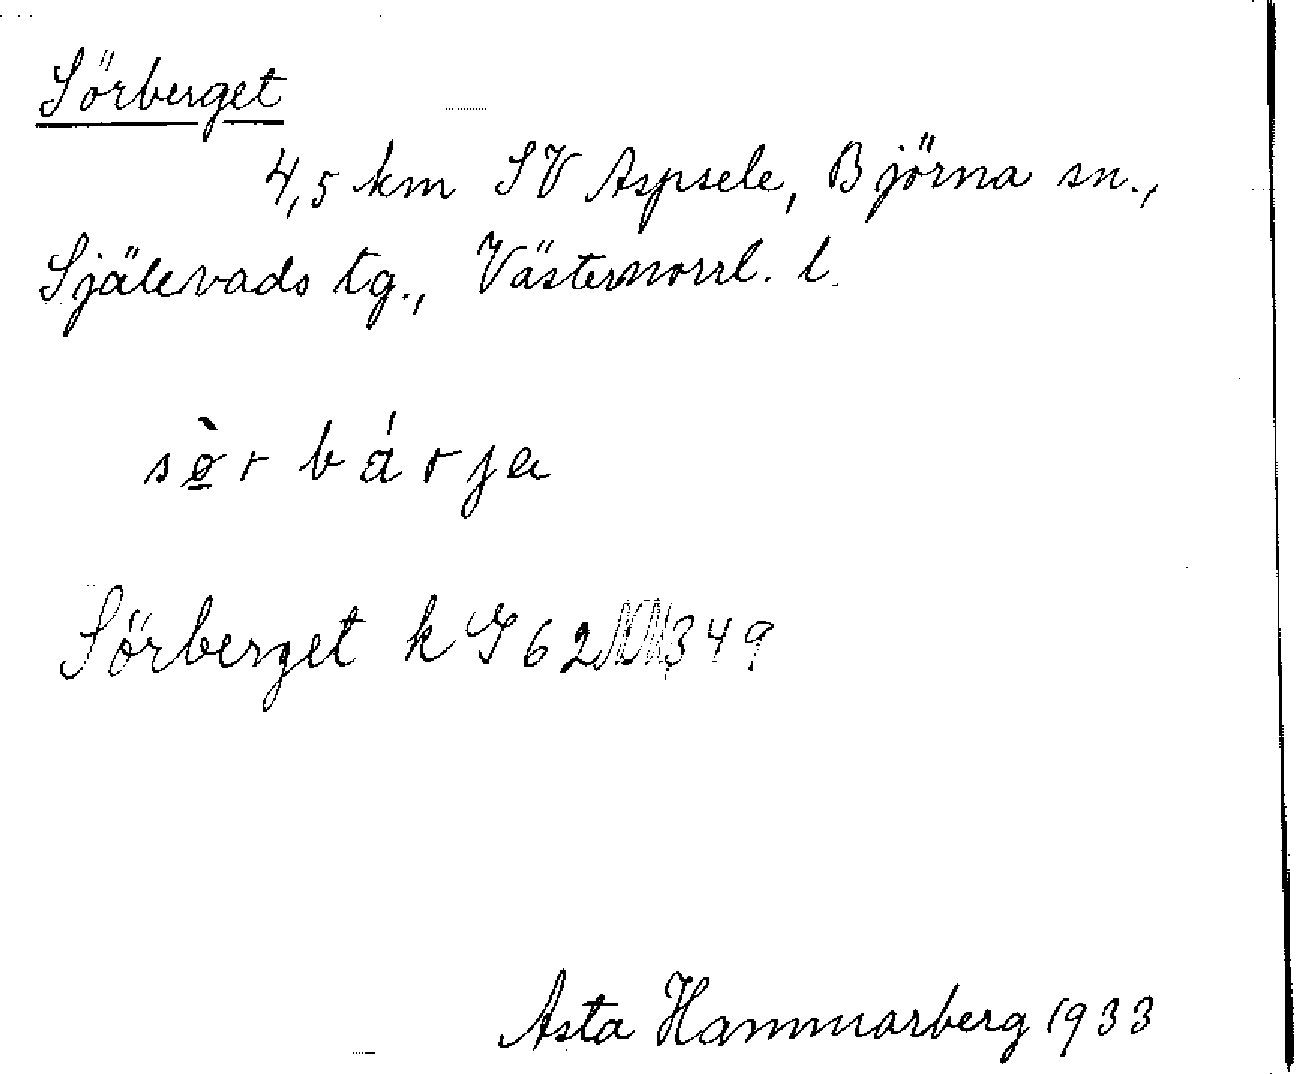 Sörberget
4,5 km SV Aspsele, Björna sn.,
Själevads tg., Västernorrl. l.
sø̲̀r bárja
Sörberget k G 62 349
Asta Hammarberg 1933